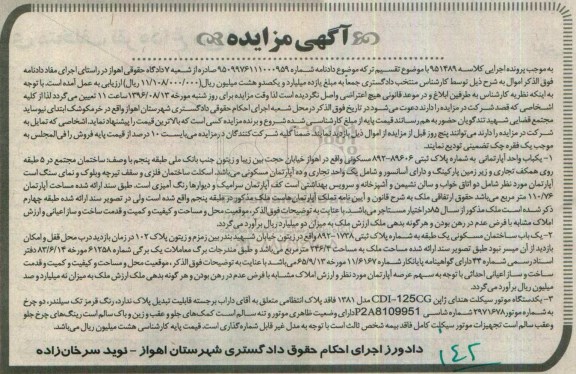 آگهی مزایده
به موجب پرونده اجرایی کلاسه ۹۵۱۴۸۹ با موضوع تقسیم ترکه موضوع دادنامه شماره ۹۵۰۹۹۷۶۱۱۱۰۰۰۹۵۹ صادره از شعبه ۷ دادگاه حقوقی اهواز در راستای اجرای مفاد دادنامه
فوق الذکر اموال به شرح ذیل توسط کارشناس منتخب دادگستری جمعا به مبلغ یازده میلیارد و یکصدو هشت میلیون ریال (۱۱/۱۰۸/۰۰۰/۰۰۰ ریال) ارزیابی به عمل آمده است. با توجه
به اینکه نظریه کارشناس به طرفین ابلاغ و در موعد قانونی هیچ اعتراضی واصل نگردیده است لذا وقت مزایده برای روز شنبه مورخه ۱۳۹۶/۰۸/۱۳ ساعت ۱۱ تعیین می گردد لذا از کلیه
اشخاصی که قصد شرکت در مزایده را دارند دعوت می شود در تاریخ فوق الذکر در محل شعبه اجرای احکام حقوقی دادگستری شهرستان اهواز واقع در خرمکوشک ابتدای نیوساید
مجتمع قضایی شهید تندگویان حضور به هم رسانند قیمت پایه از مبلغ کارشناسی شده شروع و برنده مزایده کسی است که بالاترین قیمت را پیشنهاد نماید. اشخاصی که تمایل به
شرکت در مزایده را دارند می توانند پنج روز قبل از مزایده از اموال ذیل بازدید نمایند ضمنا کلیه شرکت کنندگان در مزایده می بایست ۱۰ درصد از قیمت پایه فروش را فی المجلس به
موجب یک فقره چک تضمینی تودیع نمایند.
۱- یکباب واحد آپارتمانی به شماره پلاک ثبتی ۸۹۶۰۶-۸۹۲ مسکونی واقع در اهواز خیابان حجت بین زیبا و زیتون جنب بانک ملی طبقه پنجم با وصف: ساختمان مجتمع در ۵ طبقه
روی همکف تجاری و زیر زمین پارکینگ و دارای آسانسور و شامل یک واحد تجاری و ده آپارتمان مسکونی می باشد. اسکلت ساختمان فلزی و سقف تیرچه وبلوک و نمای سنگ است
آپارتمان مورد نظر شامل دو اتاق خواب و سالن نشیمن و آشپزخانه و سرویس بهداشتی است کف آپارتمان سرامیک و دیوارها رنگ آمیزی است. طبق سند ارائه شده مساحت آپارتمان
۱۱۰/۷۶ متر مربع می باشد حقوق ارتفاقی ملک به شرح قانون و آیین نامه تملک آپارتمان هاست ملک مذکور در طبقه پنجم واقع شده است ولی در تصویر سند ارائه شده طبقه چهارم
ذکر شده است ملک مذکور از سال ۸۵ در اختیار مستاجر می باشد. با عنایت به توضیحات فوق الذکر، موقعیت محل و مساحت و کیفیت و کمیت و قدمت ساخت و ساز اعیانی و ارزش
املاک مشابه با فرض عدم در رهن بودن و هر گونه بدهی ملک ارزش ملک به میزان دو میلیارد ریال برآورد می گردد.
۲- یک باب ساختمان مسکونی یک طبقه به شماره پلاک ثبتی ۱۷۲۸-۸۹۲ واقع در زیتون خیابان شهید بندر بین زمزم و زیتون پلاک ۱۰۲ در زمان بازدید درب محل قفل و امکان
بازدید از آن میسر نبود طبق تصویر سند ارائه شده مساحت ملک به مساحت ۲۴۶/۴ متر مربع می باشد و طبق مندرجات برگ معاملات یک برگی شماره ۶۱۲۵۸ مورخ ۸۳/۶/۱۴ دفتر
اسناد رسمی شماره ۳۴ دارای گواهینامه پایانکار شماره ۱۱/۶۱۶۷ مورخ ۶۵/۹/۱۳ می باشد با عنایت به توضیحات فوق الذکر، موقعیت محل و مساحت و کیفیت و کمیت و قدمت
ساخت و ساز اعیانی احداثی با توجه به سهم عرصه آپارتمان مورد نظر و ارزش املاک مشابه با فرض عدم در رهن بودن و هر گونه بدهی ملک ارزش ملک به میزان نه میلیارد و صد
میلیون ریال برآورد می گردد.
۳- یکدستگاه موتور سیکلت هندای ژاپن CDI-125CG مدل ۱۳۸۱ فاقد پلاک انتظامی متعلق به آقای داراب برجسته قابلیت تبدیل پلاک ندارد، رنگ قرمز تک سیلندر، دو چرخ
به شماره موتور ۲۹۷۱۶۷۸ شماره شاسی P2A8109951 دارای وضعیت ظاهری موتور و تنه سالم است کمک های جلو و عقب و زین و باک سالم است رینگ های چرخ جلو
وعقب سالم است تجهیزات موتور سیکلت کامل فاقد بیمه شخص ثالث است با توجه به مدل غیر قابل شماره گذاری است. قیمت پایه کارشناسی هشت میلیون ریال می باشد.
دادورز اجرای احکام حقوق دادگستری شهرستان اهواز - نوید سرخان زاده
۱۴۲